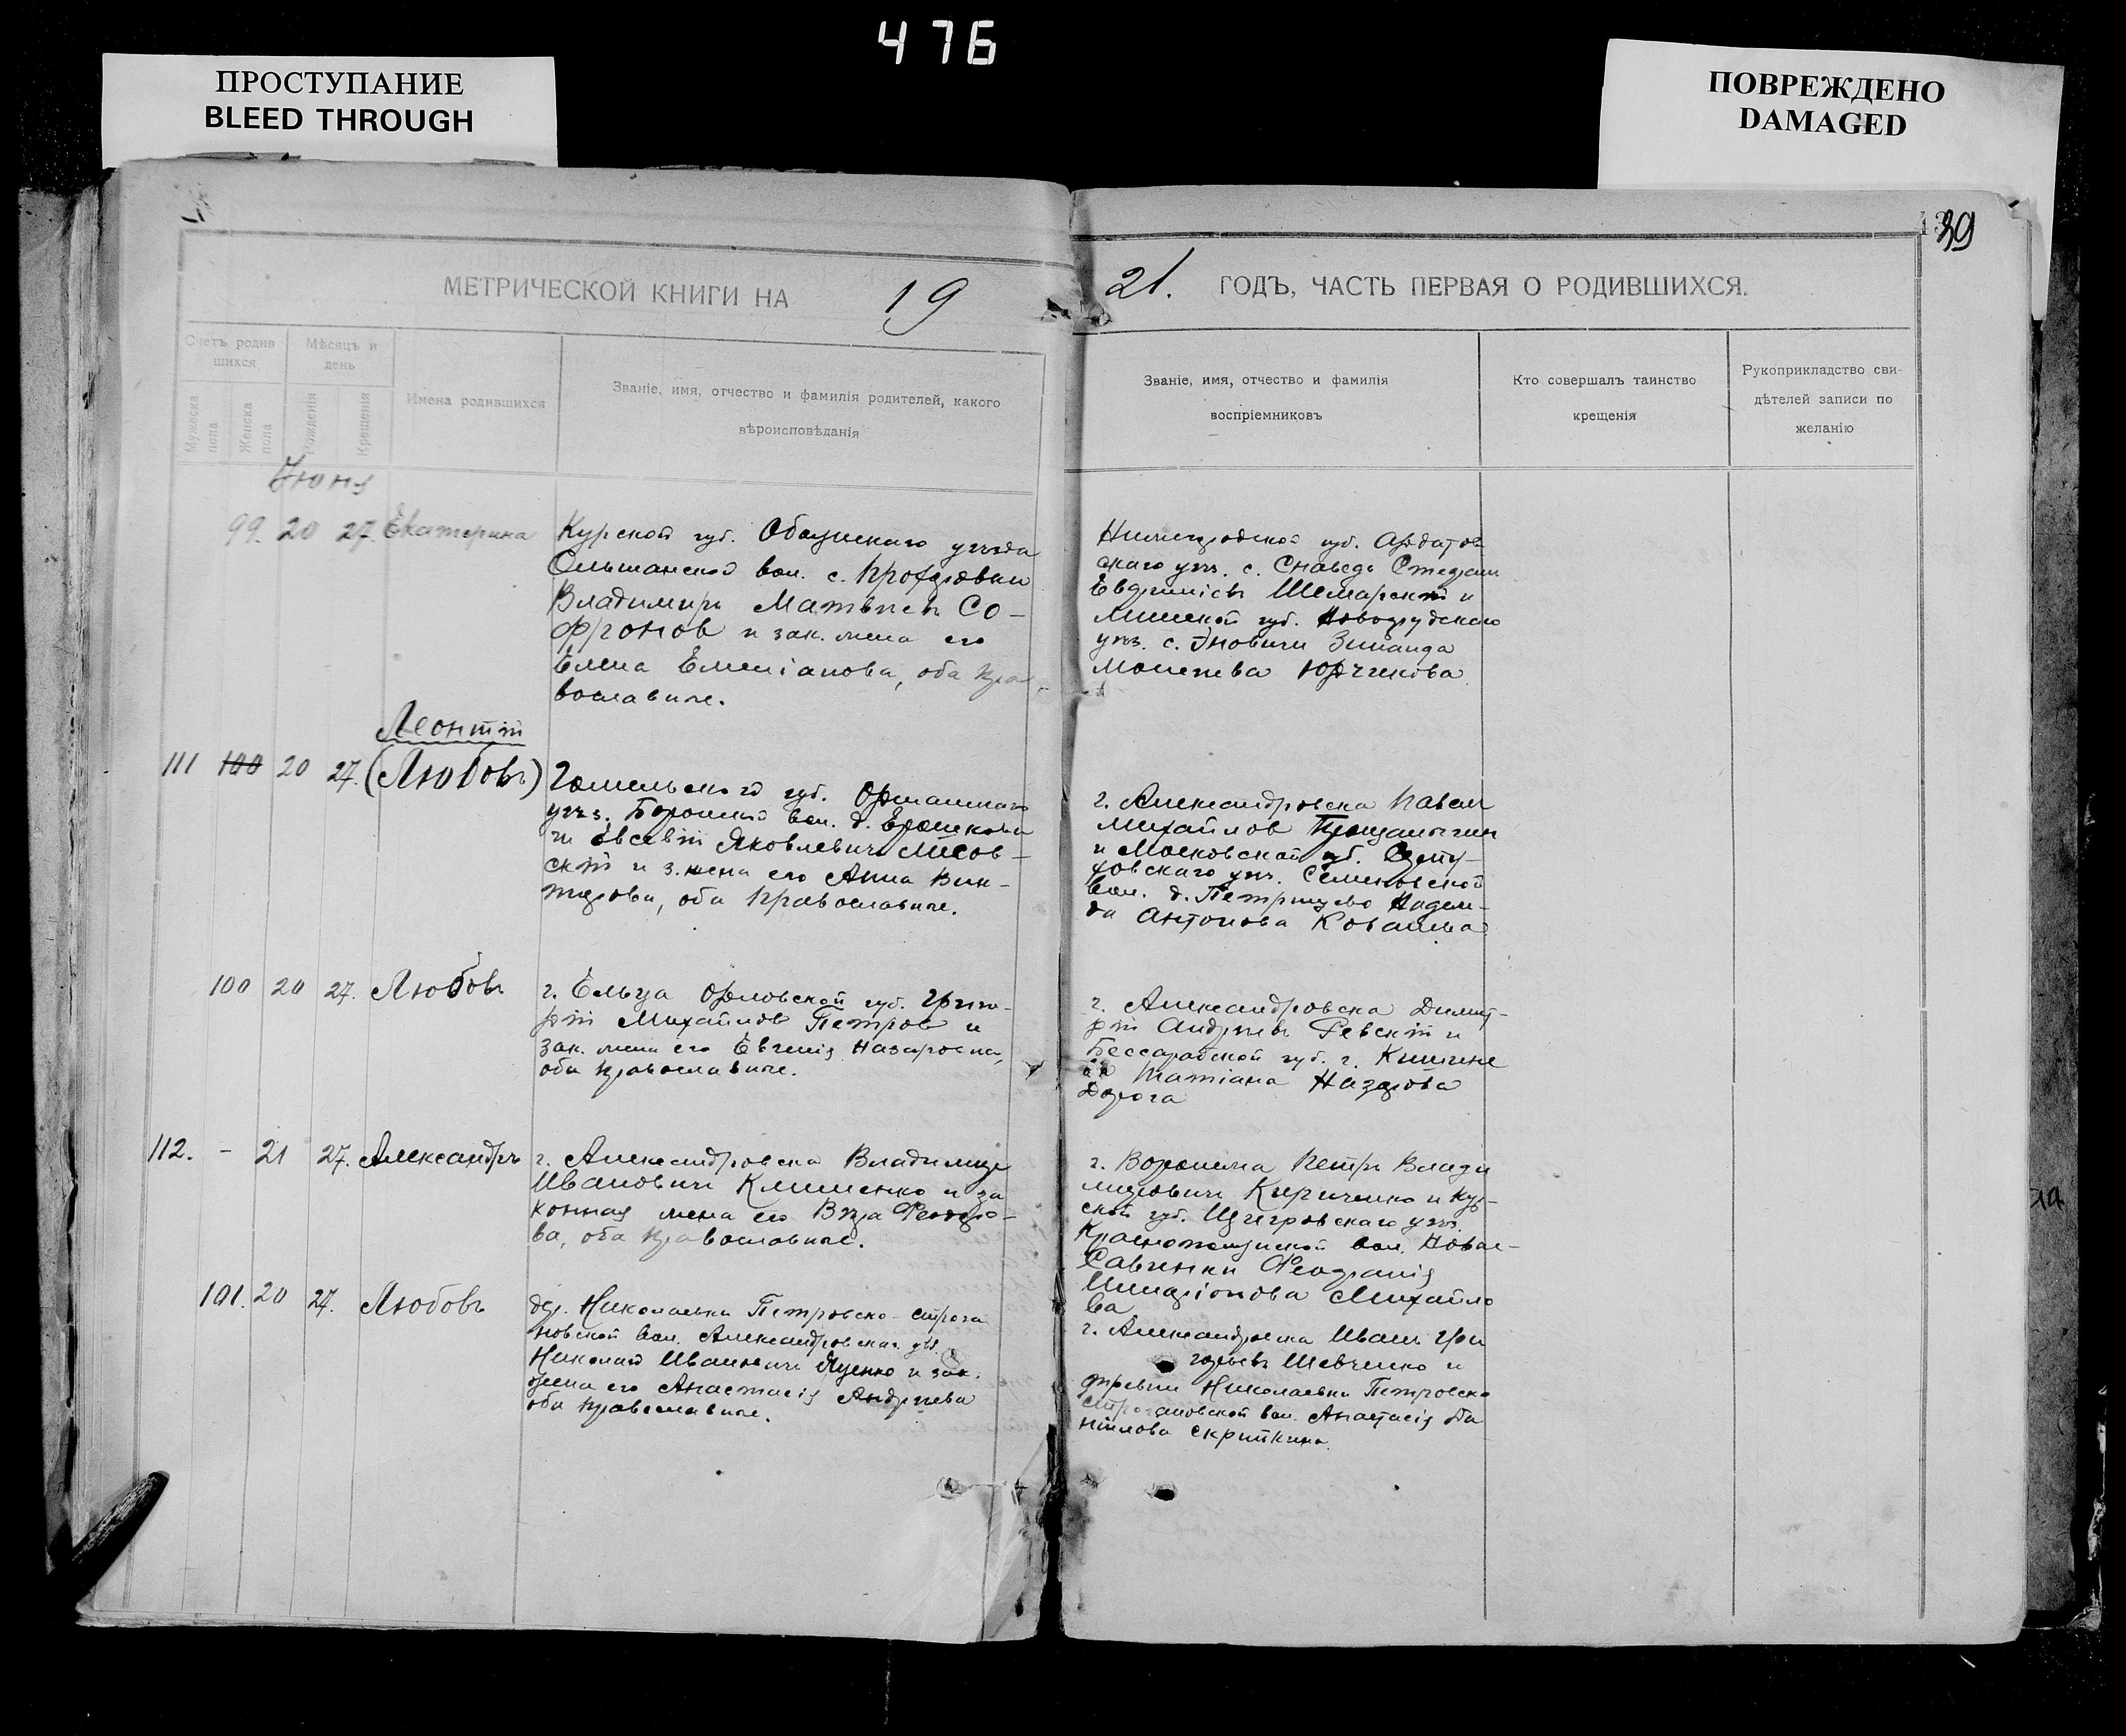 476
ПРОСТУПАНИЕ
BLEED THROUGH
ПОВРЕЖДЕНО
DAMAGED
39
МЕТРИЧЕСКОЙ КНИГИ НА 19
21. ГОДЪ, ЧАСТЬ ПЕРВАЯ О РОДИВШИХСЯ.
Счетъ родив
шихся
Мужеска
пола
Женска
пола
Мѣсяцъ и
день
Рожденія
Крещенія
Имена родившихся
Званіе, имя, отчество и фамилія родителей, какого
вѣроисповѣданія
Званіе, имя, отчество и фамилія
воспріемниковъ
Кто совершалъ таинство
крещенія
Рукоприкладство сви-
дѣтелей записи по
желанію
Іюня
99. 20 27. Екатерина
Курской губ. Обоянскаго уѣзда
Ольшанской вол. с.
Владимиръ Матвѣевъ Со-
фронов и зак. жена его
Елена Емеліанова, оба пра
вославные.
Нижегородской губ. Ардатов
скаго уѣз. с. Стефанъ
Шемарскій и
Минской губ. Новогрудскаго
уѣз. с. Зинаида
Моисеева
Леонтій
111 100 20 27. (Любовь)
Гомельской губ. Оршанскаго
уѣз. вол. д.
Евсевій Яковлевичъ Лисов-
скій и з. жена его Анна Вик-
торова, оба православные.
г. Александровска Павел
Михайлов
и Московской губ. Серпу-
ховскаго уѣз. Семеновской
вол. д. Надеж-
да Антонова
100 20 27. Любовь
г. Ельца Орловской губ. Григо-
рій Михайлов Петров и
зак. жена его Евгенія Назаровна,
оба православные.
г. Александровска Димит-
рій Андреевъ Ревскій и
Бессарабской губ. г. Кишине
ва Татіана Назарова
Дорога
112. - 21 27. Александръ
г. Александровска Владимиръ
Ивановичъ Клименко и за
конная жена его Вѣра Феодоро-
ва, оба православные.
г. Воронежа Петръ Влади
мировичъ Кириченко и Кур-
ской губ. Щигровскаго уѣз.
вол. Ново-
Савинки
Михайло
ва
101. 20 27. Любовь
дер. Николаевки Петровско-Строга
новской вол. Александровскаго уѣз.
Николай Ивановичъ Яценко и зак.
жена его Анастасія Андреева
оба православные.
г. Александровска Иванъ Гри
горьевъ Шевченко и
деревни Николаевки Петровско
Строгановской вол. Анастасія Да
нилова Скрипкина.